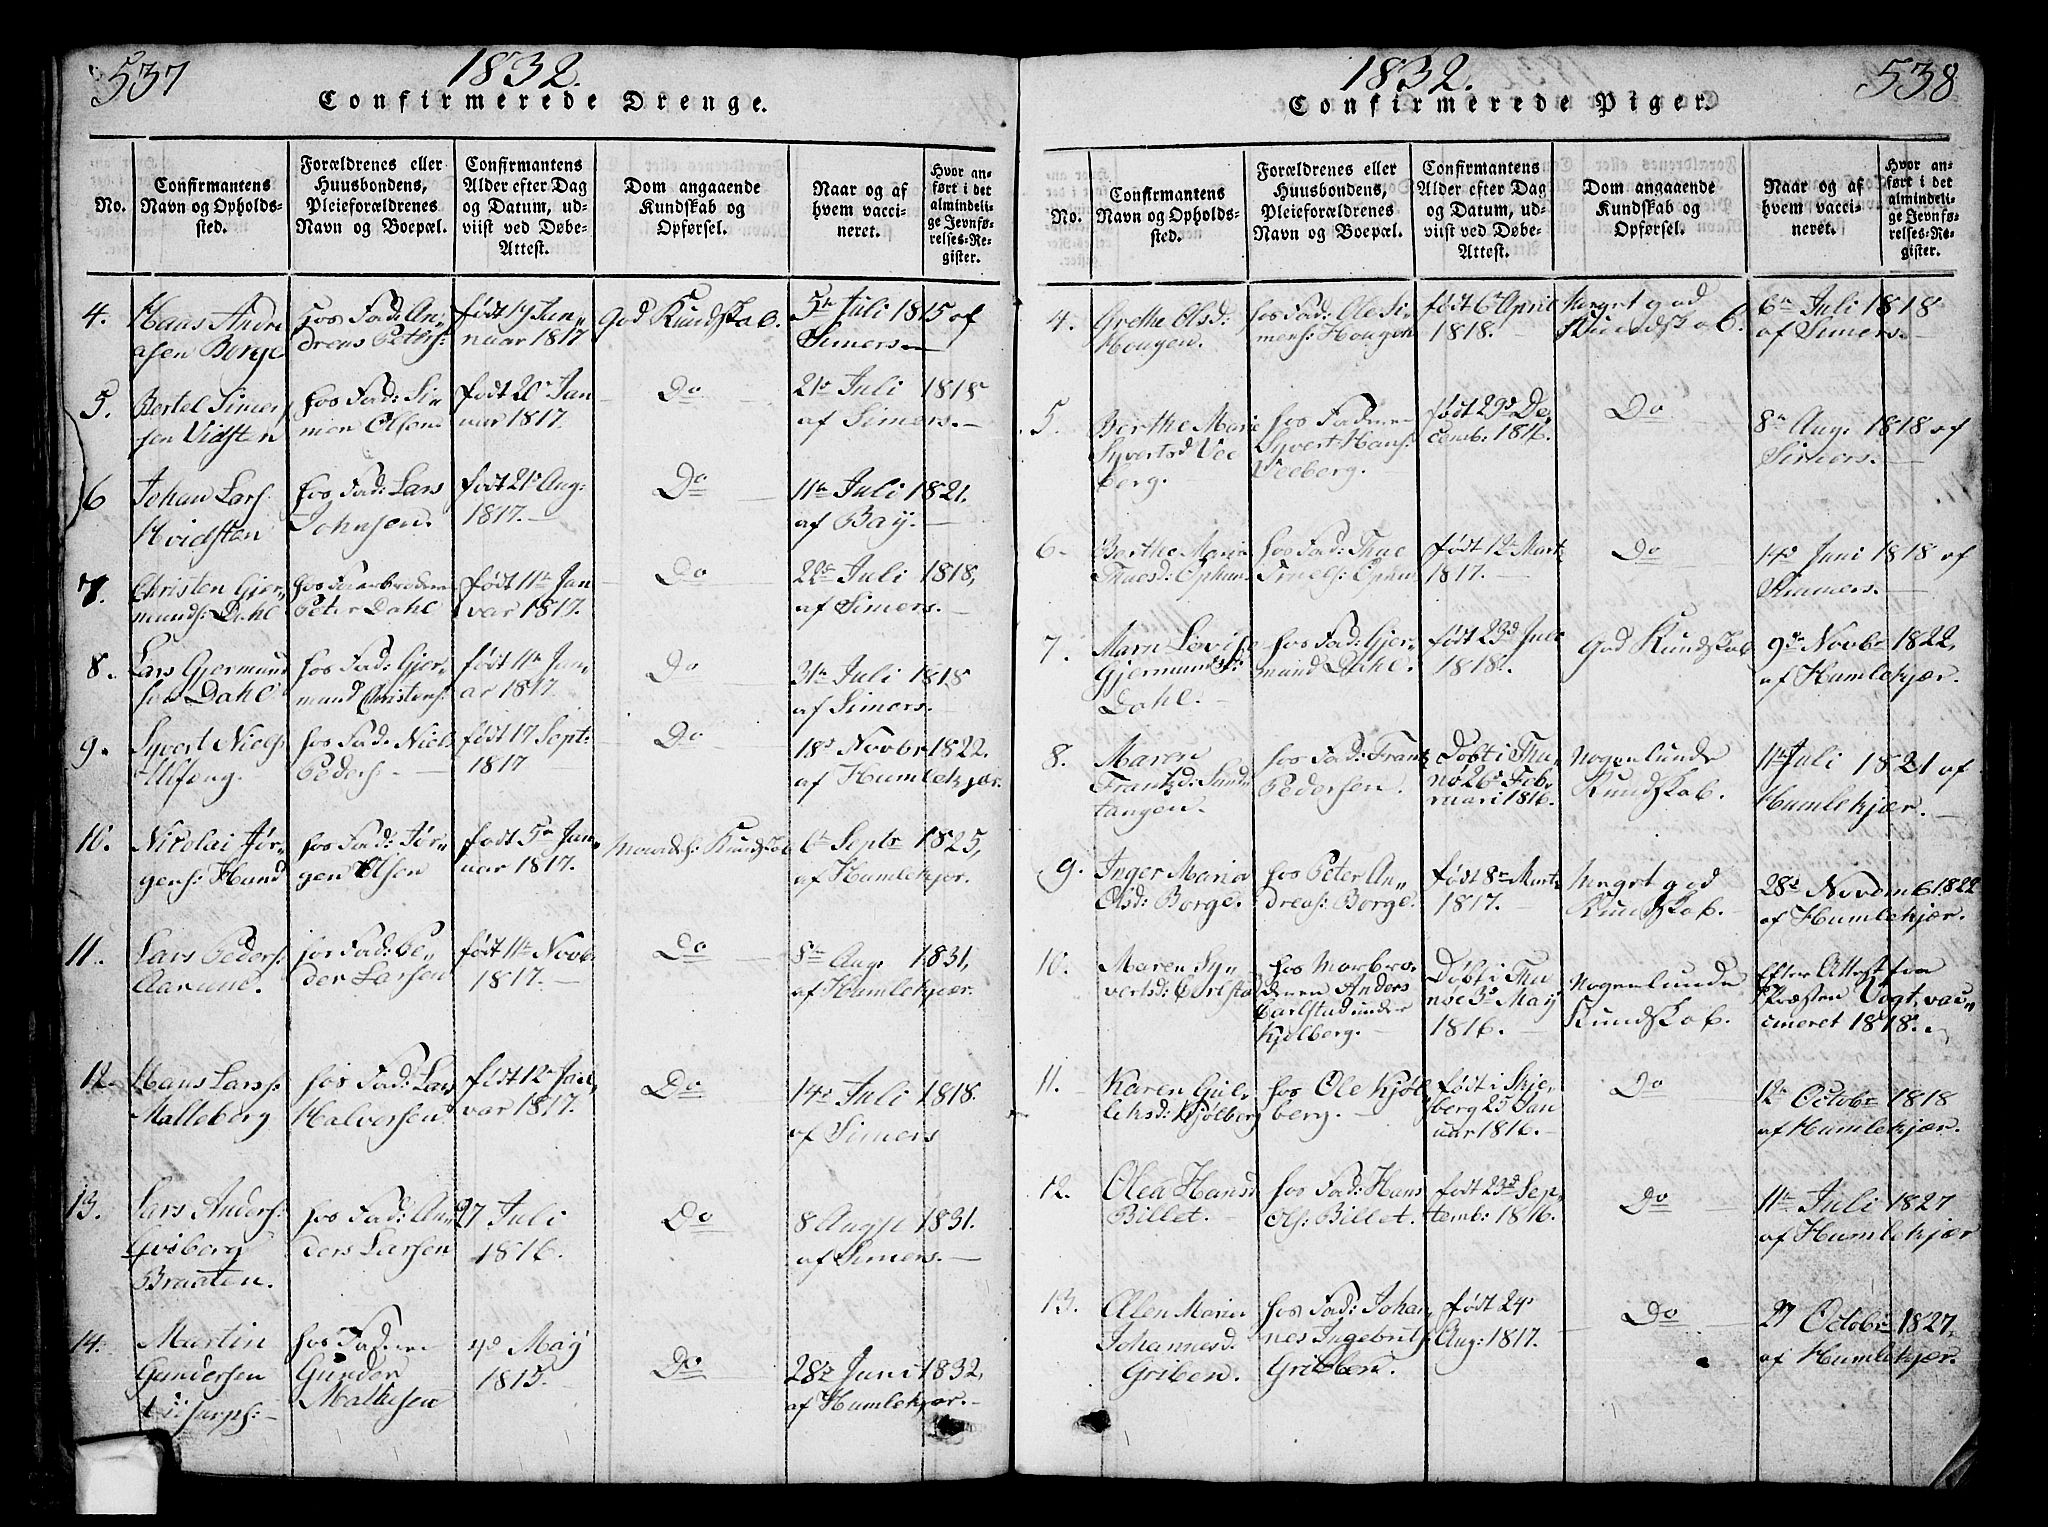 537
1832.
Confirmerede Drenge.
No.
Confirmantens
Navn og Opholds-
sted.
Forældrenes eller
Huusbondens,
Pleieforældrenes
Navn og Boepæl.
Confirmantens
Alder efter Dag
og Datum, ud-
viist ved Døbe-
Attest.
Dom angaaende
Kundskab og
Opførsel.
Naar og af
hvem vacci-
neret.
Hvor an-
ført i det
almindeli-
ge Jevnfø-
relses-Re-
gister.
4.
Hans Andre
asen Borge
hos Fad: An,,
dreas Peters:
født 19 Jan,,
nuar 1817
god Kundskab.
5te Juli 1815 af
Simers.
5.
Bertel Simen
sen Vidsten
hos Fad: Si,,
mon Olsen
født 20de Jan
uar 1817.
Do
21de Juli 1818
af Simers.
6
Johan Lars:
Hvidsten
hos Fad: Lars
Johnsen.
født 21de Aug:
1817.
Do
11te Juli 1821.
af Bay.
7.
Christen Gjer,,
munds: Dahl
hos Farbroderen
Peter Dahl
født 11te Jan
var 1817.
Do
22de Juli 1818,
af Simers.
8.
Lars Gjermund
sen Dahl
hos Fad: Gjer,,
mund Christens:
født 11te Jan,,
ar 1817.
Do
31te Juli 1818
af Simers.
9.
Syvert Niels:
Ulfeng.
hos Fad: Niels
Peders:
født 17 Sept:
1817
Do
18de Novbr 1822.
af Humlekjær.
10.
Nikolai Jør,,
gens: Hund
hos Fad: Jør,,
gen Olsen
født 5te Jan,,
uar 1817.
Maadel: Kundskab
6te Septbr 1825,
af Humlekjær.
11.
Lars Peders:
Aarum.
hos Fad: Pe,,
der Larsen
født 11te Novbr
1817.
Do
8de Aug. 1831,
af Humlekjær.
12.
Hans Larss:
Malleberg
hos Fad: Lars
Halversen
født 12te Jan,,
var 1817.
Do
14de Juli 1818.
af Simers
13.
Lars Anders:
Braaten.
hos Fad: An,,
ders Larsen
27 Juli
1816.
Do
8 Augst 1831.
af Simers.
14.
Martin
Gundersen
hos Faderen
Gunder
Mathisen
4de May
1815.
Do
28de Juni 1832,
af Humlekjær.
1832.
538
Confirmerede Piger.
No.
Confirmantens
Navn og Opholds-
sted.
Forældrenes eller
Huusbondens,
Pleieforældrenes
Navn og Boepæl.
Confirmantens
Alder efter Dag
og Datum, ud-
viist ved Døbe-
Attest.
Dom angaaende
Kundskab og
Opførsel.
Naar og af
hvem vacci-
neret.
Hvor an-
ført i det
almindeli-
ge Jevnfø-
relses-Re-
gister.
4.
Grethe Olsd:
Hougen.
hos Fad: Ole Si,,
mens: Hougen
født 6te April
1818.
Meget god
Kundskab.
6te Juli 1818
af Simers.
5.
Berthe Marie
Syvertsd Vee
berg.
hos Faderen
Syvert Hans:
Veeberg.
født 29de De,,
cemb. 1816.
Do
8de Aug. 1818 af
Simers.
6.
Berthe Maria
Thuesd: Ophuus
hos Fad: Thue
Troels: Ophuus
født 12te Mart
1817.
Do
14de Juni 1818 af
Simmers.
7.
Marn Lovise
Gjermundsd:
Dahl.
hos Fad: Gjer,,
mund Dahl.
født 29de Juli
1818.
god Kundskab
9de Novbr 1822,
af Humlekjær.
8.
Maren
Frantzd: Sund
tangen.
hos Fad: Frantz
Pedersen.
Døbt i Thu,,
nø 26de Feb,,
ruari 1816.
Nogenlunde
Kundskab.
11te Juli 1821 af
Humlekjær.
9.
Inger Maria
Olsd: Borge.
hos Peter An,,
dreas: Borge.
født 8de Mart
1817.
Meget god
Kundskab.
28de Novemb 1822
af Humlekjær.
10.
Maren Sy,,
vertsd: Carlstad
hos Morbro,,
deren Anders
Carlstad under
Kjølberg.
Døbt i Thu,,
nøe 3de May
1816.
Nogenlunde
Kundskab.
Efter Attest fra
Præsten Vogt, vac,,
cineret 1818.
11.
Karen Gul,,
leksd: Kjølberg
hos Ole Kjøl
berg.
født i Skje,,
berg 25 Jan
uar 1816.
Do
12te Octobr 1818
af Humlekjær.
12.
Olea Hansd
Billet.
hos Fad: Hans
Ols: Billet.
født 23de Sep,,
temb: 1816.
Do
11te Juli 1827
af Humlekjær
13.
Ellen Maria
Johannesd.
Griben.
hos Fad: Johan,,
nes Ingebrets:
Gribben.
født 24de
Aug: 1817.
Do
27 Octobr 1827.
af Humlekjær.